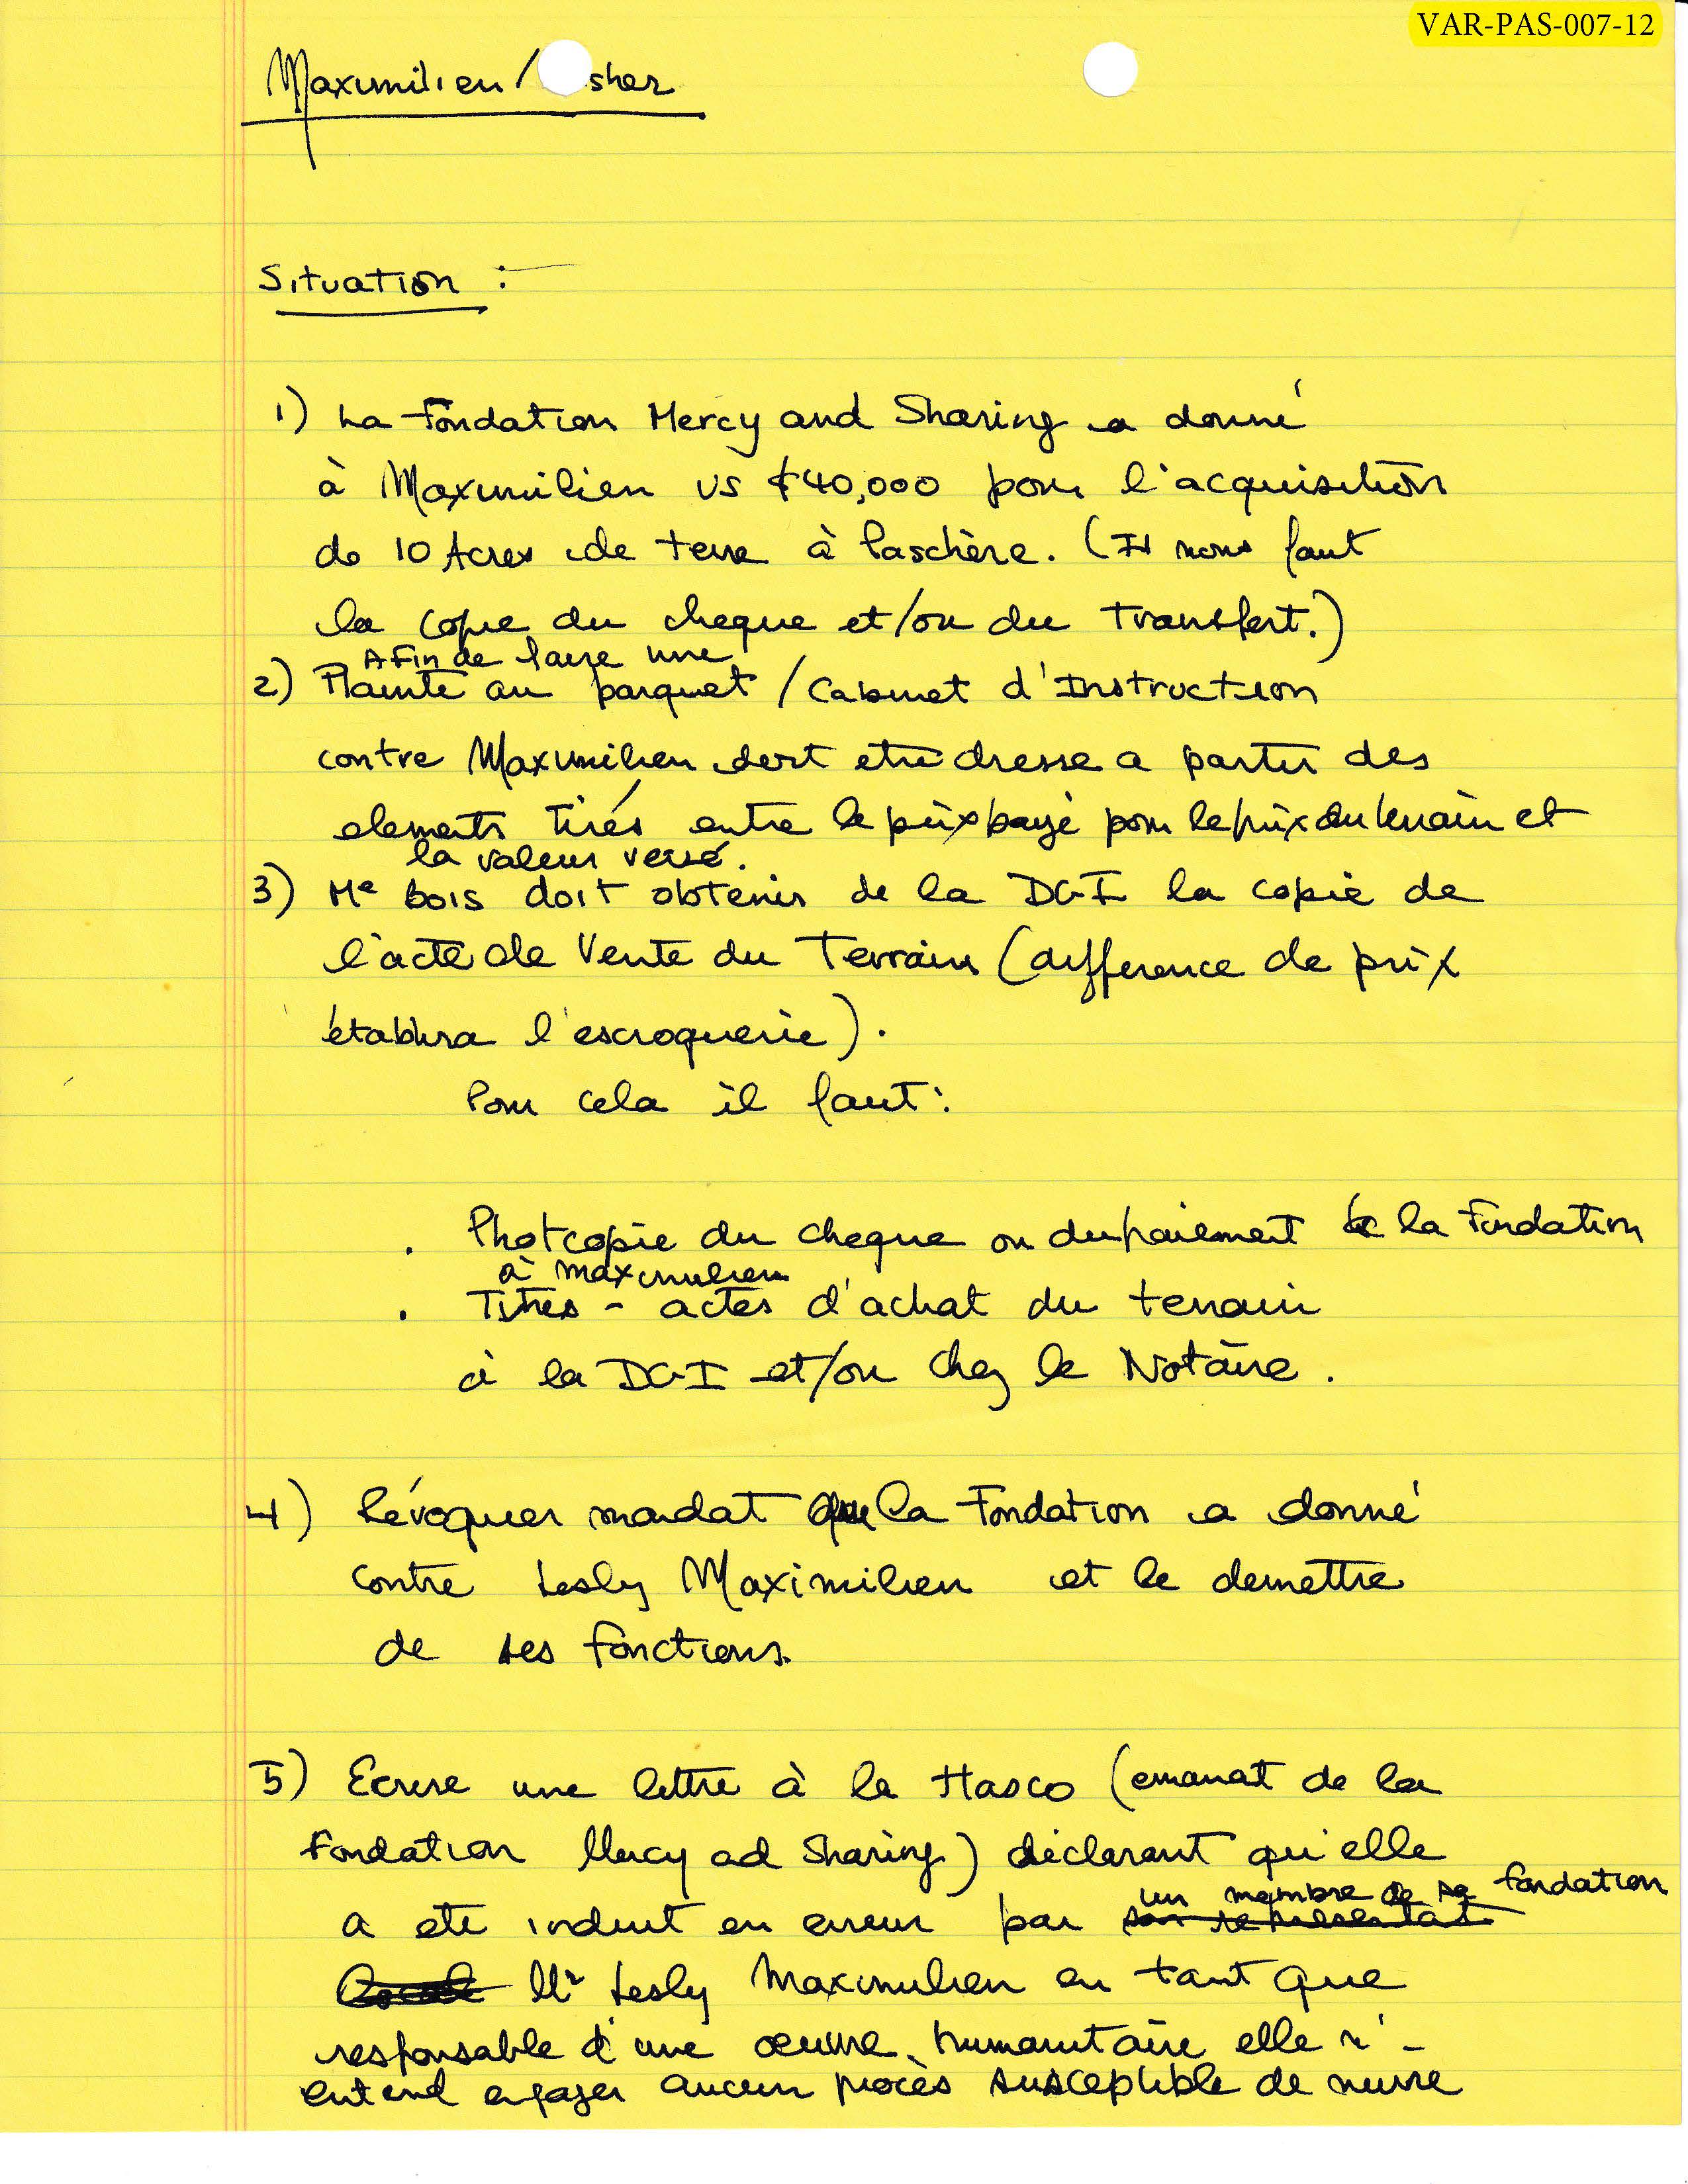 VAR-PAS-007-12
Maximilien / sher
Situation :
1) La Fondation Mercy and Sharing a donné
à Maximilien US $40,000 pour l'acquisition
de 10 Acres de terre à Paschère. (Il nous faut
la copie du cheque et/ou du Transfert.)
Afin de faire une
2) Plainte au parquet / Cabinet d'Instruction
contre Maximilien doit etre dresse a partir des
elements tirés entre le prix payé pour le prix du terrain et
la valeur versé.
3) Me Bois doit obtenir de la DGI la copie de
l'acte de Vente du Terrain (difference de prix
établira l'escroquerie).
Pour cela il faut:
. Photcopie du cheque ou du paiement de la Fondation
à Maximilien
. Titres - actes d'achat du terrain
à la DGI et/ou chez le Notaire.
4) Révoquer mandat que la Fondation a donné
contre Lesly Maximilien et le demettre
de ses fonctions.
5) Ecrire une lettre à la Hasco (emanat de la
Fondation Mercy ad Sharing) déclarant qu'elle
un membre de sa fondation
a ete induit en erreur par son representat
Mr Lesly Maximilien en tant que
responsable d'une œuvre humanitaire elle n'-
entend engager aucun procès susceptible de nuire